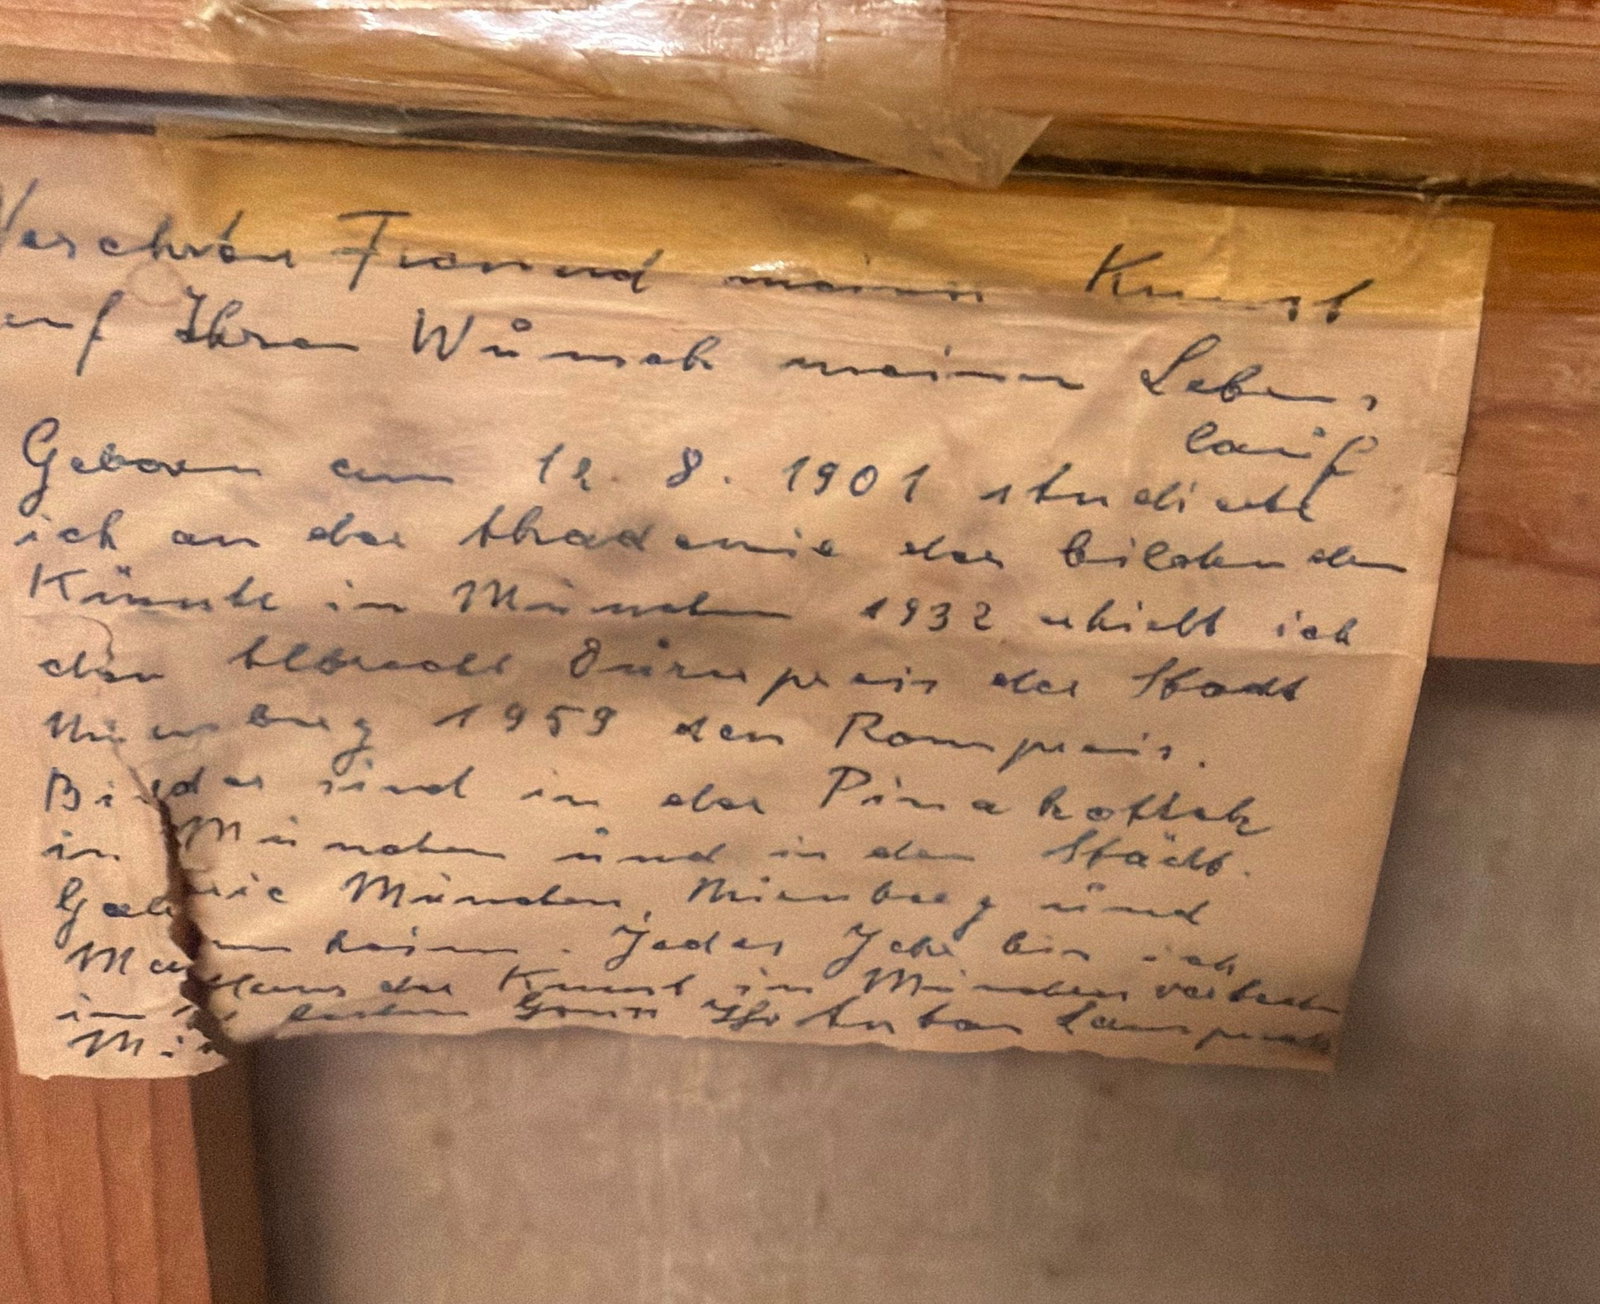 Verehrter Freund meiner Kunst
auf Ihren Wunsch meinen Lebens
lauf
Geboren am 12. 8. 1901 studierte
ich an der Akademie der bildenden
Künste in München 1932 erhielt ich
den Albrecht Dürerpreis der Stadt
Nürnberg 1959 den Rompreis.
Bilder sind in der Pinakothek
in München und in den Städt.
Galerie München, Nürnberg und
Mannheim. Jedes Jahr bin ich
im Haus der Kunst in München vertreten
Mit besten Gruss Ihr Anton Lamprecht